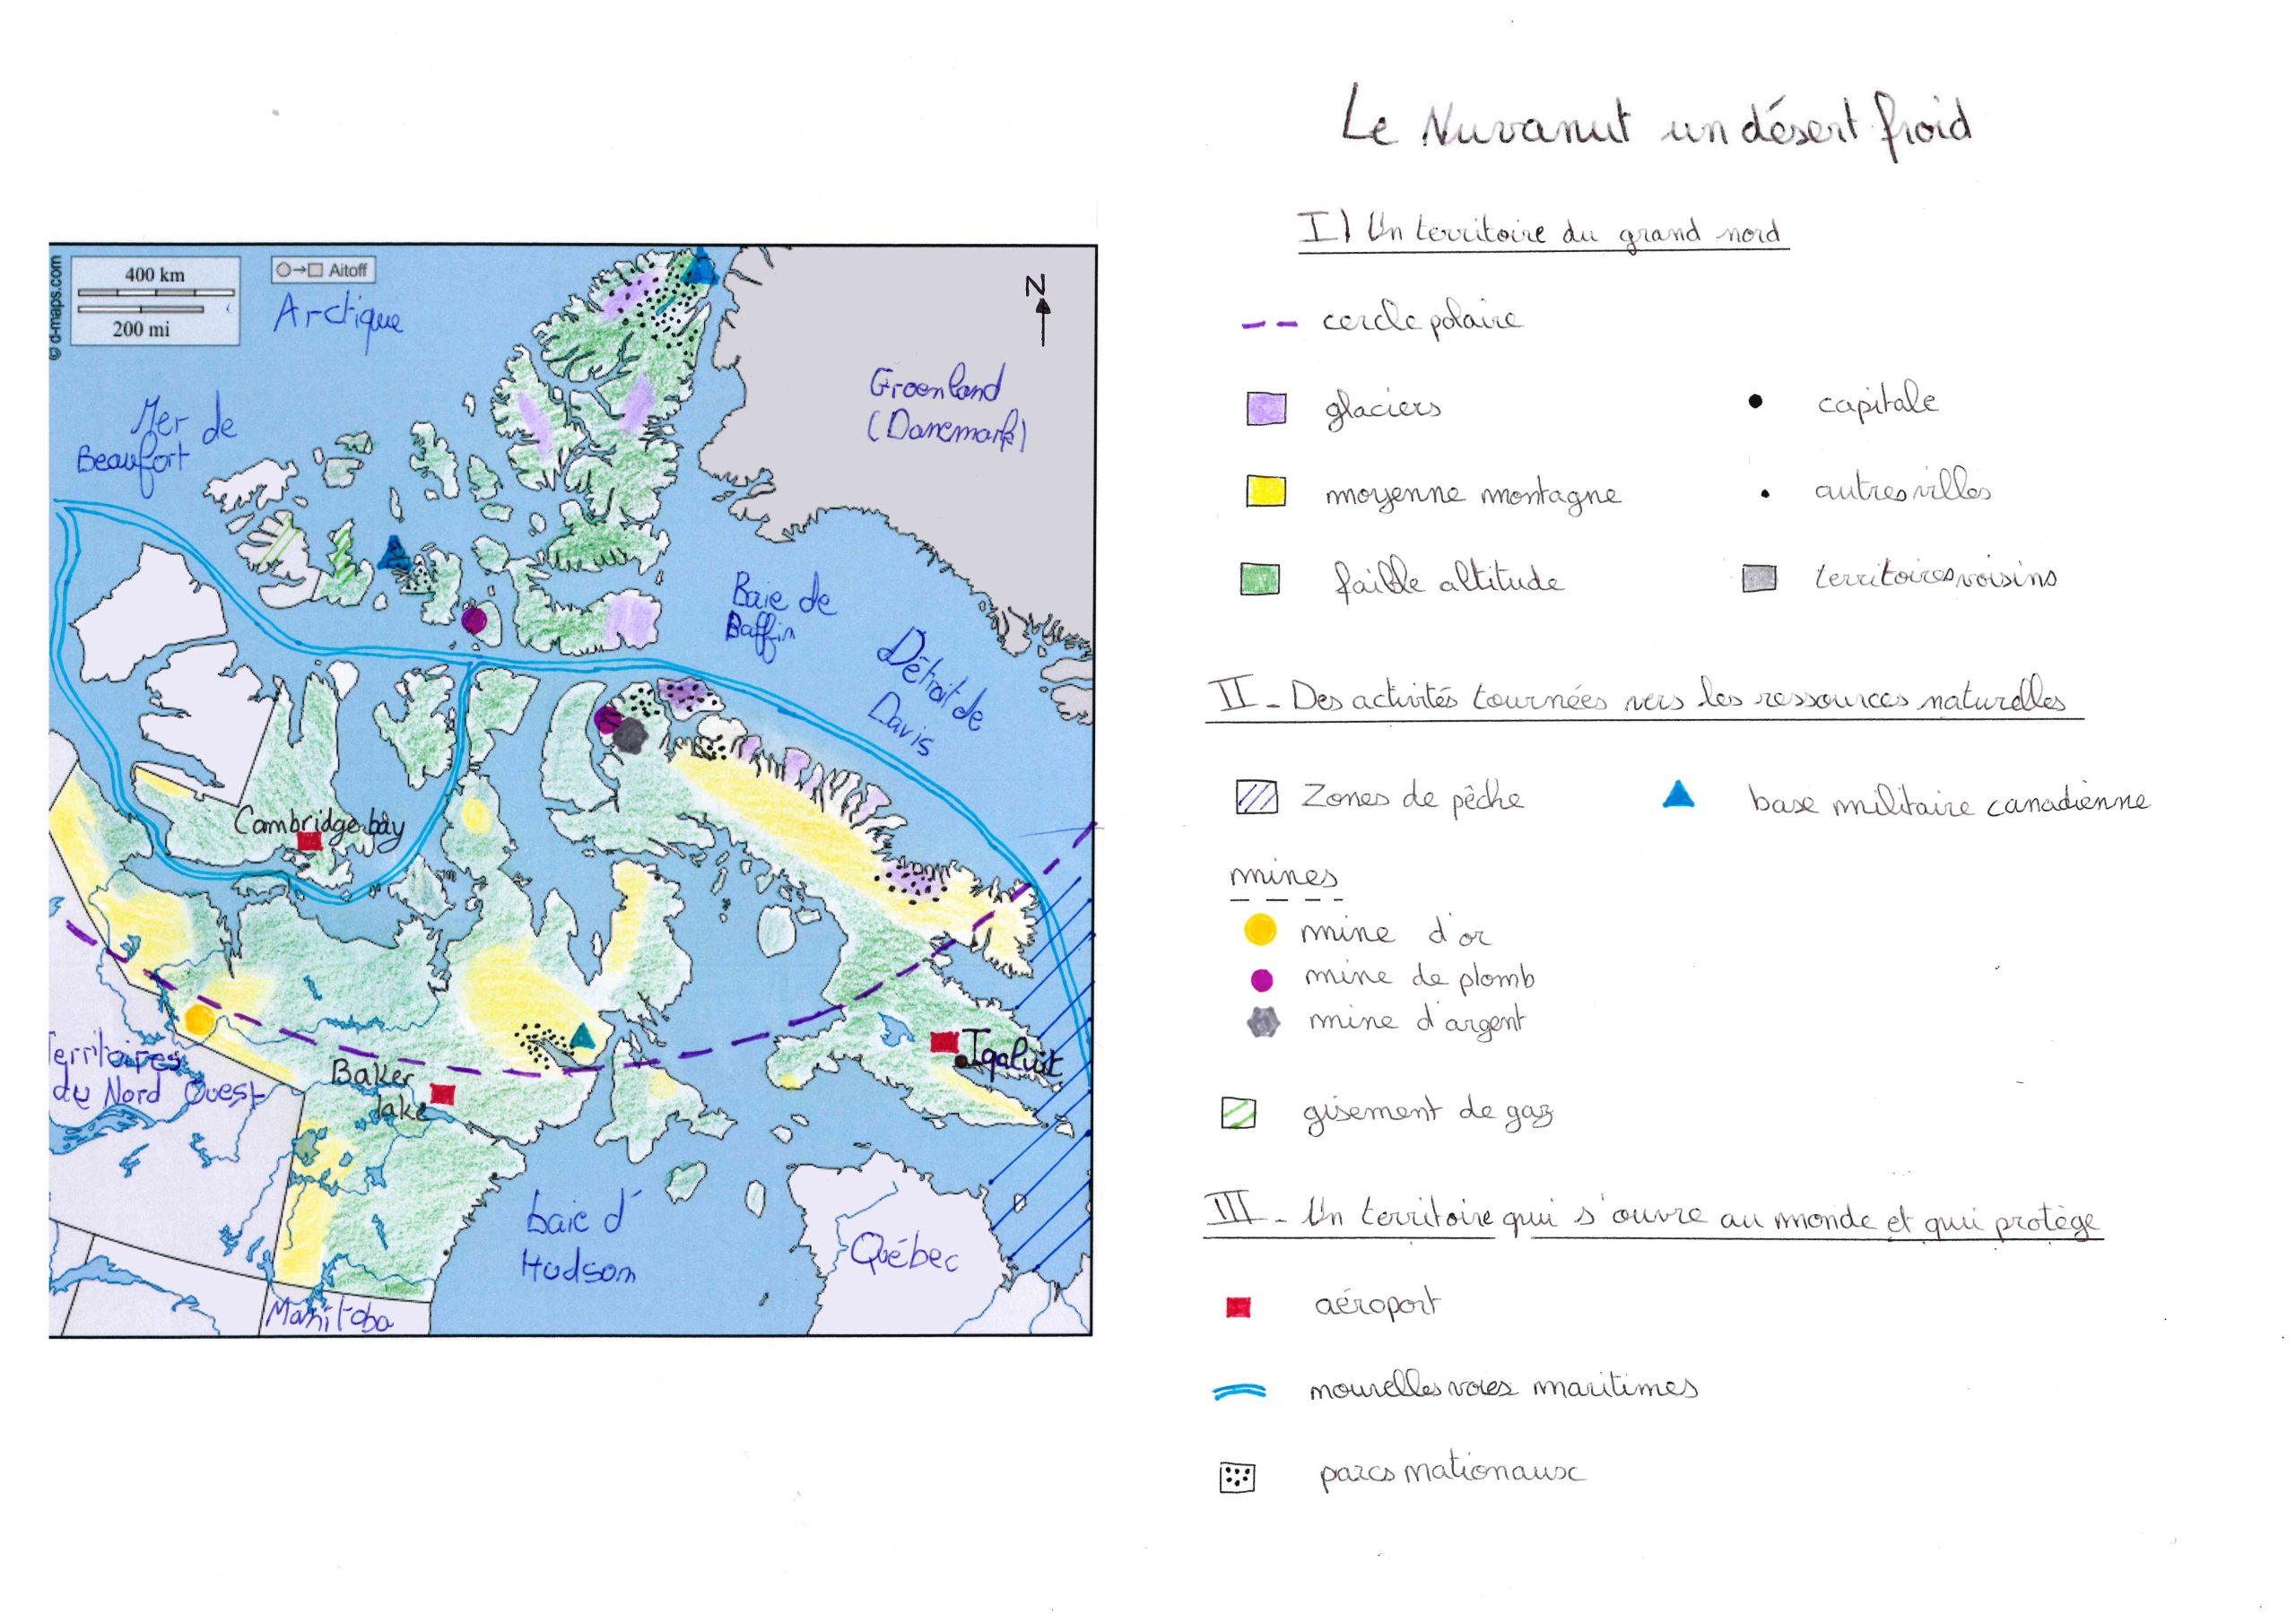 Le Nuvanut un désert froid
I) Un territoire du grand nord
cercle polaire
glaciers
capitale
moyenne montagne
autres villes
faible altitude
territoires voisins
II - Des activités tournées vers les ressources naturelles
Zones de pêche
base militaire canadienne
mines
mine d'or
mine de plomb
mine d'argent
gisement de gaz
III - Un territoire qui s'ouvre au monde et qui protège
aéroport
nouvelles voies maritimes
parcs nationaux
© d-maps.com
400 km
200 mi
Aitoff
N
Arctique
Mer de
Beaufort
Groenland
(Danemark)
Baie de
Baffin
Détroit de
Davis
Cambridge bay
Territoires
du Nord Ouest
Baker
lake
Iqaluit
baie d'
Hudson
Québec
Manitoba